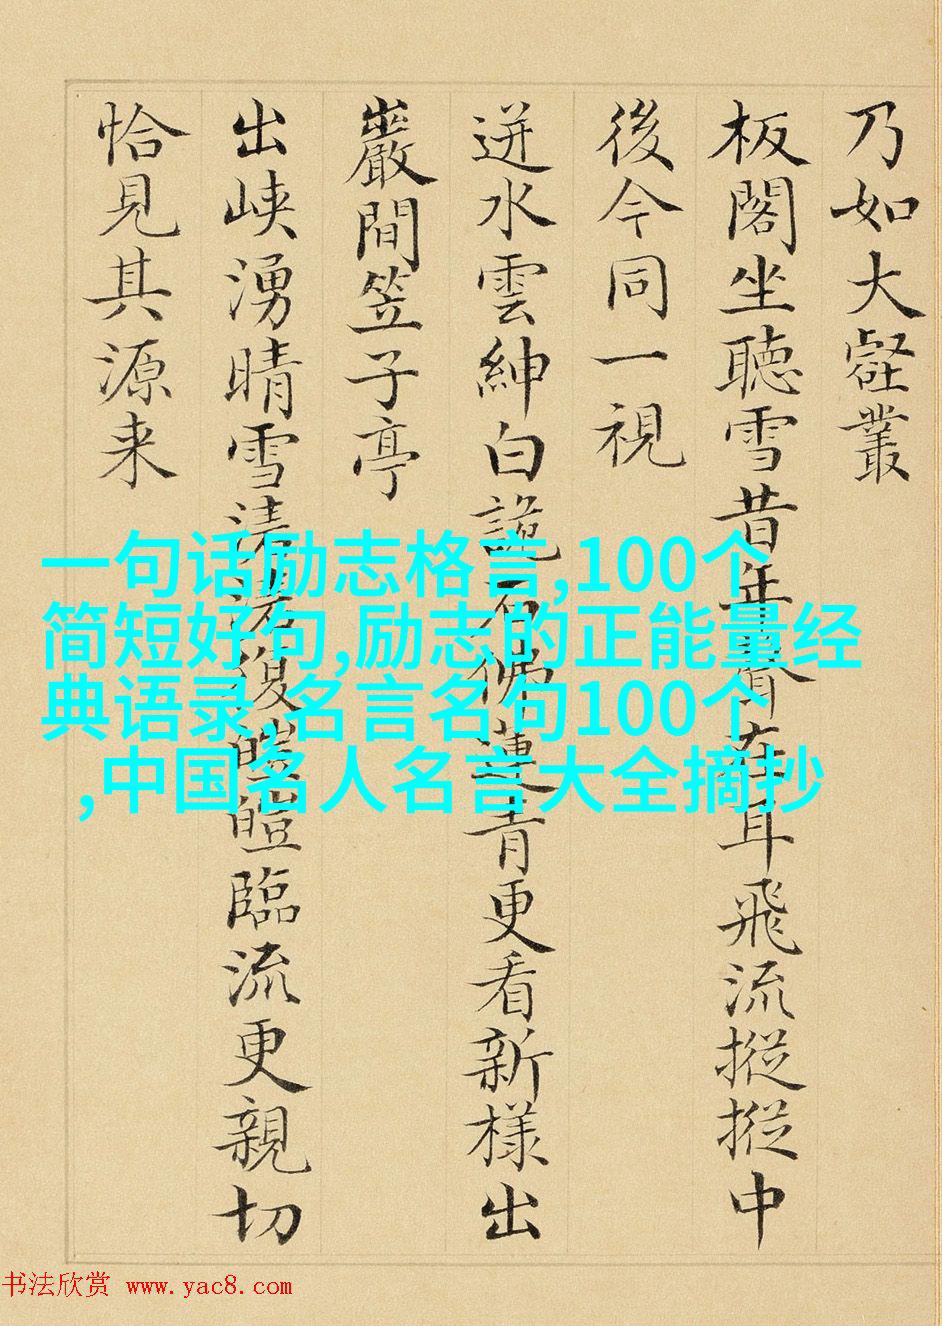 乃如大壑叢
板閣坐聽雪昔年春在耳飛流摐摐中
後今同一視
迸水雲紳白詭石佛蓮青更看新樣出
巖間笠子亭
出峽湧晴雪清湍復皚皚臨流更親切
恰見其源来
一句话励志格言,100个
简短好句,励志的正能量经
典语录,名言名句100个
,中国名人名言大全摘抄
书法欣赏 www.yac8.com